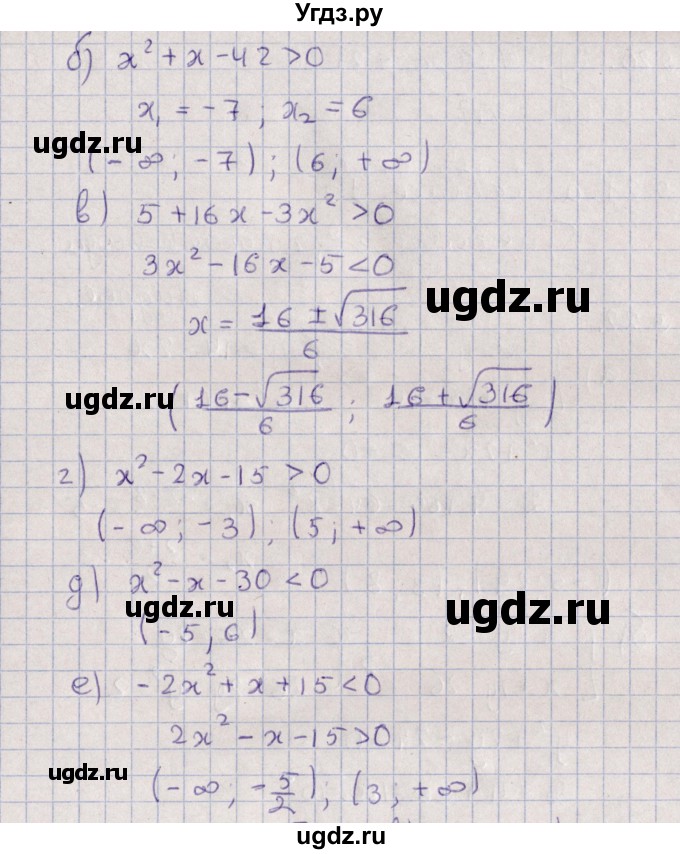 Угдз.ру
б) x² + x - 42 > 0
x₁ = -7 ; x₂ = 6
ugdz.ru
(-∞ ; -7) ; (6 ; +∞)
в) 5 + 16x - 3x² > 0
3x² - 16x - 5 < 0
ugdz.ru
x = (16 ± √316)/6
ugdz.ru
((16 - √316)/6 ; (16 + √316)/6)
г) x² - 2x - 15 > 0
(-∞ ; -3) ; (5 ; +∞)
д) x² - x - 30 < 0
ugdz.ru
ugdz.ru
(-5 ; 6)
е) -2x² + x + 15 < 0
2x² - x - 15 > 0
ugdz.ru
(-∞ ; -5/2) ; (3 ; +∞)
ugdz.ru